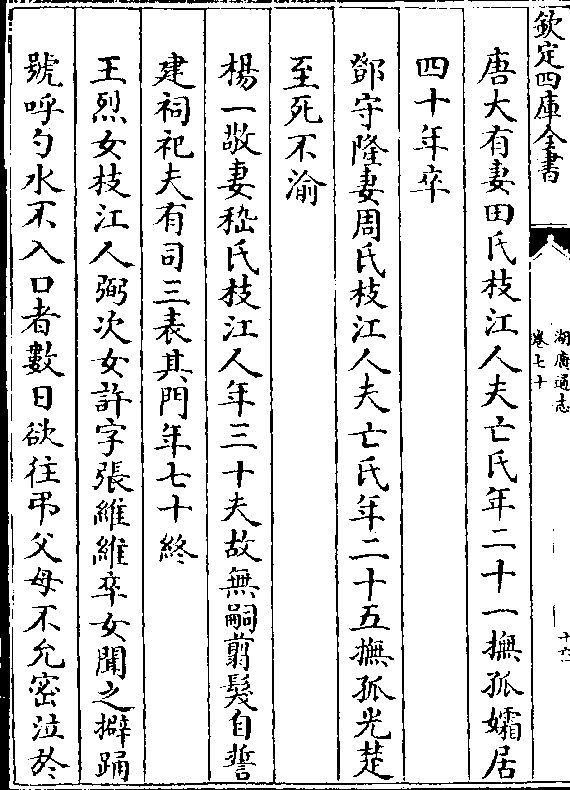 欽定四庫全書
湖廣通志
卷七十
十六
唐大有妻田氏枝江人夫亡氏年二十一撫孤孀居
四十年卒
鄧守隆妻周氏枝江人夫亡氏年二十五撫孤光楚
至死不渝
楊一敬妻嵇氏枝江人年三十夫故無嗣翦髮自誓
建祠祀夫有司三表其門年七十終
王烈女枝江人弼次女許字張維維卒女聞之擗踊
號呼勺水不入口者數日欲往弔父母不允密泣於